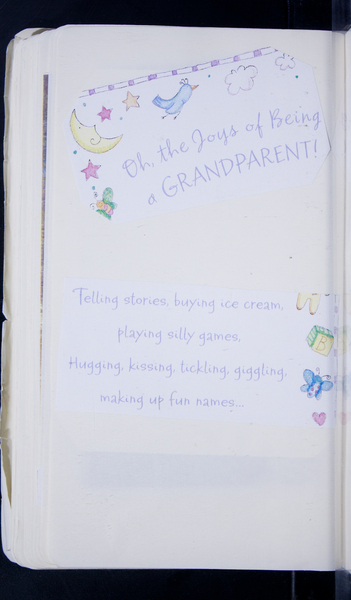 Oh, the Joys of Being
a GRANDPARENT!
Telling stories, buying ice cream,
playing silly games,
Hugging, kissing, tickling, giggling,
making up fun names...
B